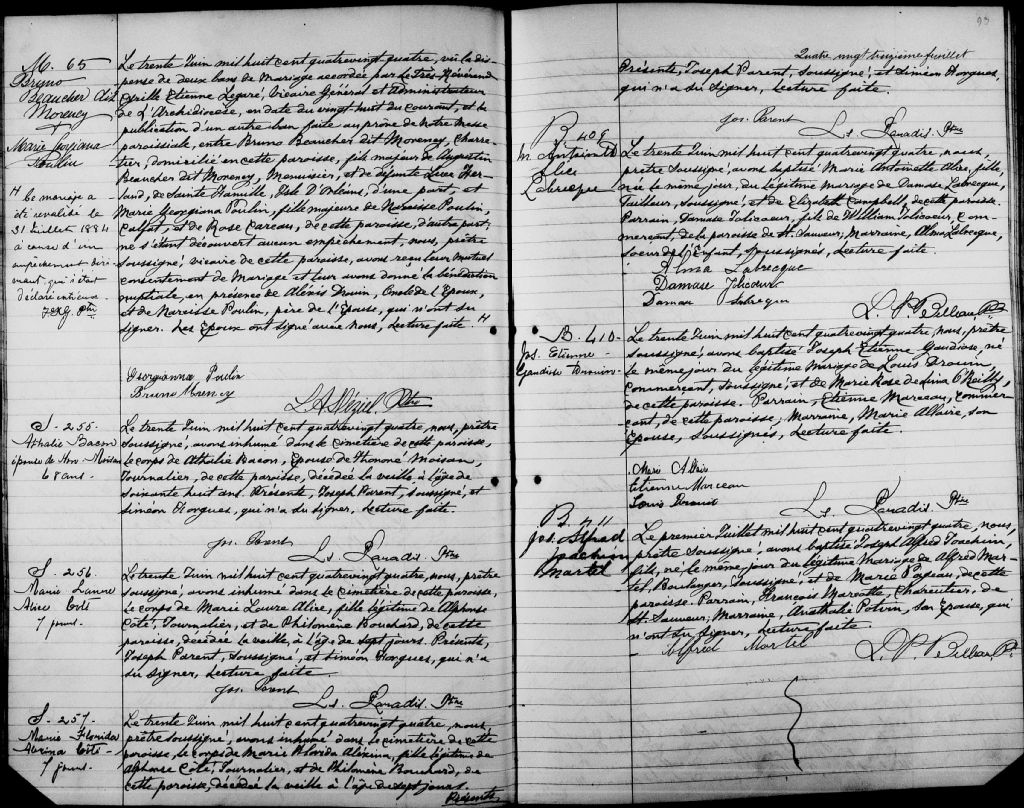 M. 65
Bruno
Beaucher dit
Morency
&
Marie Georgiana
Poulin
H
Ce mariage a
été revalidé le
31 Juillet 1884
à cause d'un
empêchement diri-
mant, qui s'était
déclaré
Ptre
Le trente Juin mil huit cent quatrevingt quatre, vû la dis-
pense de deux bans de Mariage accordée par le Très Révérend
Cyrille Etienne Legaré, Vicaire Général et Administrateur
de L'Archidiocèse, en date du vingt huit du courant, et la
publication d'un autre ban faite au prône de notre Messe
paroissiale, entre Bruno Beaucher dit Morency, Charre-
tier, domicilié en cette paroisse, fils majeur de Augustin
Beaucher dit Morency, Menuisier, et de défunte Luce
de Sainte Famille, Isle D'Orléans, d'une part, et
Marie Georgiana Poulin, fille majeure de Narcisse Poulin,
Calfat, et de Rose Careau, de cette paroisse, d'autre part;
ne s'étant découvert aucun empêchement, nous, prêtre
soussigné, vicaire de cette paroisse, avons reçu leur mutuel
consentement de Mariage et leur avons donné la bénédiction
nuptiale, en présence de Alexis Drouin, Oncle de l'Epoux,
et de Narcisse Poulin, père de l'Epouse, qui n'ont su
signer. Les Epoux ont signé avec nous, Lecture faite. H
Georgianna Poulin
Bruno Morency
L A Déziel Ptre
S - 255 -
Athalie Bacon
épouse de Hon. Moisan
68 ans.
Le trente Juin mil huit cent quatrevingt quatre, nous, prêtre
soussigné, avons inhumé dans le cimetière de cette paroisse,
le corps de Athalie Bacon, Epouse de Honoré Moisan,
Journalier, de cette paroisse, décédée la veille à l'âge de
soixante huit ans. Présents, Joseph Parent, soussigné, et
Siméon Horgues, qui n'a su signer, Lecture faite.
Jos. Parent
Ls. Paradis. Ptre
S - 256 -
Marie Laure
Alice Coté
7 jours.
Le trente Juin mil huit cent quatrevingt quatre, nous, prêtre
soussigné, avons inhumé dans le cimetière de cette paroisse,
le corps de Marie Laure Alice, fille légitime de Alphonse
Coté, Journalier, et de Philomène Bouchard, de cette
paroisse, décédée la veille, à l'âge de sept jours. Présents,
Joseph Parent, soussigné, et Siméon Horgues, qui n'a
su signer, Lecture faite.
Jos. Parent
Ls. Paradis. Ptre
S - 257 -
Marie Florida
Coté -
7 jours.
Le trente Juin mil huit cent quatrevingt quatre, nous
prêtre soussigné, avons inhumé dans le cimetière de cette
paroisse, le corps de Marie Florida fille légitime de
Alphonse Côté, Journalier, et de Philomène Bouchard, de
cette paroisse, décédée la veille à l'âge de sept jours.
Présents,
93
Quatre vingt treizième feuillet
Présents, Joseph Parent, soussigné, et Siméon Horgues,
qui n'a su signer, Lecture faite.
Jos. Parent
Ls. Paradis. Ptre
B 409
M Antoinette
Alice
Labrecque
Le trente Juin mil huit cent quatrevingt quatre, nous,
prêtre soussigné, avons baptisé Marie Antoinette Alice, fille,
née le même jour, du légitime mariage de Damase Labrecque,
Tailleur, soussigné, et de Elizabeth Campbell, de cette paroisse.
Parrain, Damase Jolicoeur, fils de William Jolicoeur, Com-
merçant, de la paroisse de St. Sauveur; Marraine, Alma Labrecque,
soeur de l'Enfant, soussignés, Lecture faite.
Alma Labrecque
Damase Jolicoeur
Damase Labrecque
B. 410 -
Jos. Etienne
Gaudiose Drouin -
Le trente Juin mil huit cent quatrevingt quatre, nous, prêtre
soussigné, avons baptisé Joseph Etienne Gaudiose, né
le même jour du légitime Mariage de Louis Drouin,
commerçant, soussigné, et de Marie Rose de Lima O'Reilly,
de cette paroisse. Parrain, Etienne Marceau, commer-
çant, de cette paroisse; Marraine, Marie Allaire, son
Epouse, soussignés, Lecture faite.
Marie Allaire
Etienne Marceau
Louis Drouin
Ls. Paradis. Ptre
B. 411
Jos. Alfred
Joachim
Martel
Le premier Juillet mil huit cent quatrevingt quatre, nous,
prêtre soussigné, avons baptisé Joseph Alfred Joachim,
fils, né le même jour du légitime Mariage de Alfred Mar-
tel, Boulanger, soussigné, et de Marie Papeau, de cette
paroisse. Parrain, François Marcotte, Charretier, de
St. Sauveur; Marraine, Anathalie Potvin, son Epouse, qui
n'ont su signer, Lecture faite.
Alfred Martel